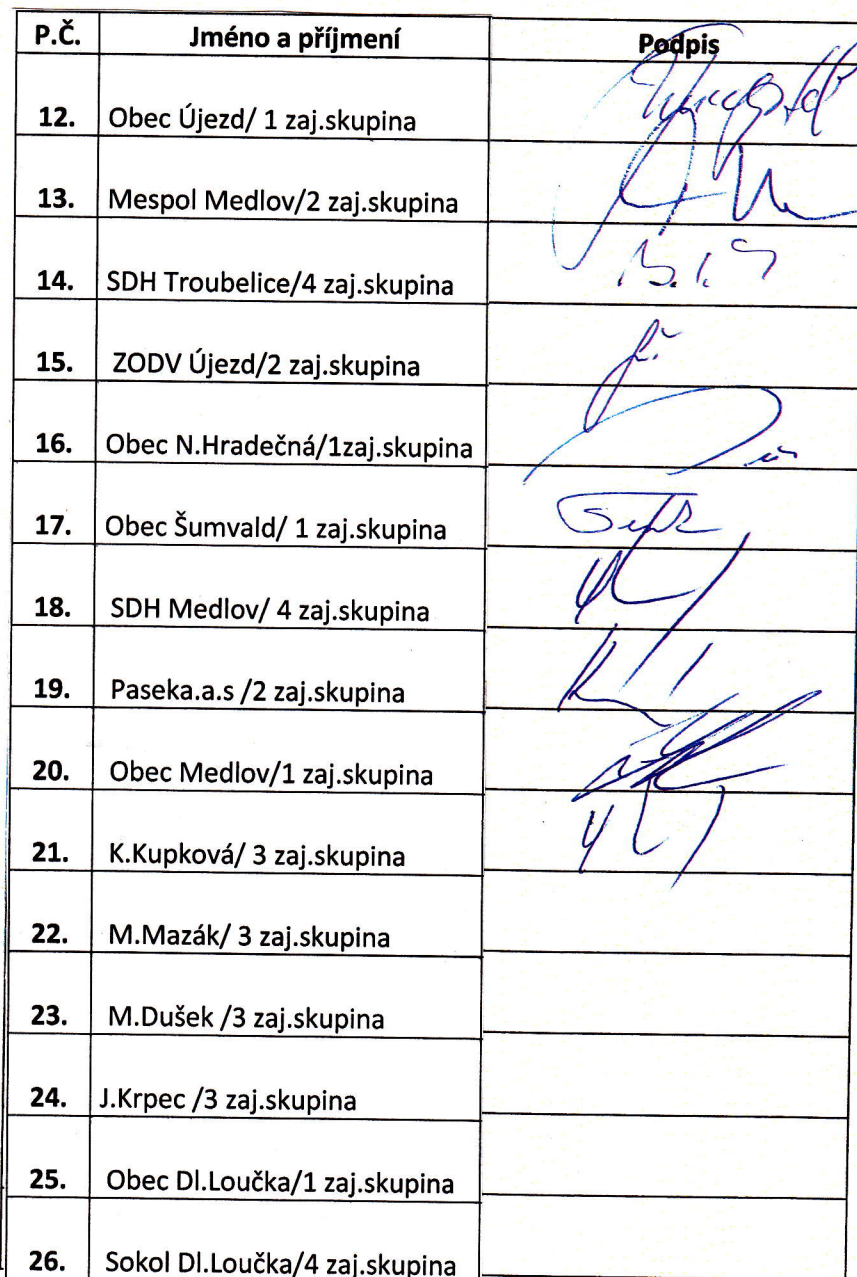 P.Č. Jméno a příjmení Podpis
12. Obec Újezd/ 1 zaj.skupina
13. Mespol Medlov/2 zaj.skupina
14. SDH Troubelice/4 zaj.skupina
15. ZODV Újezd/2 zaj.skupina
16. Obec N.Hradečná/1zaj.skupina
17. Obec Šumvald/ 1 zaj.skupina
18. SDH Medlov/ 4 zaj.skupina
19. Paseka.a.s /2 zaj.skupina
20. Obec Medlov/1 zaj.skupina
21. K.Kupková/ 3 zaj.skupina
22. M.Mazák/ 3 zaj.skupina
23. M.Dušek /3 zaj.skupina
24. J.Krpec /3 zaj.skupina
25. Obec Dl.Loučka/1 zaj.skupina
26. Sokol Dl.Loučka/4 zaj.skupina